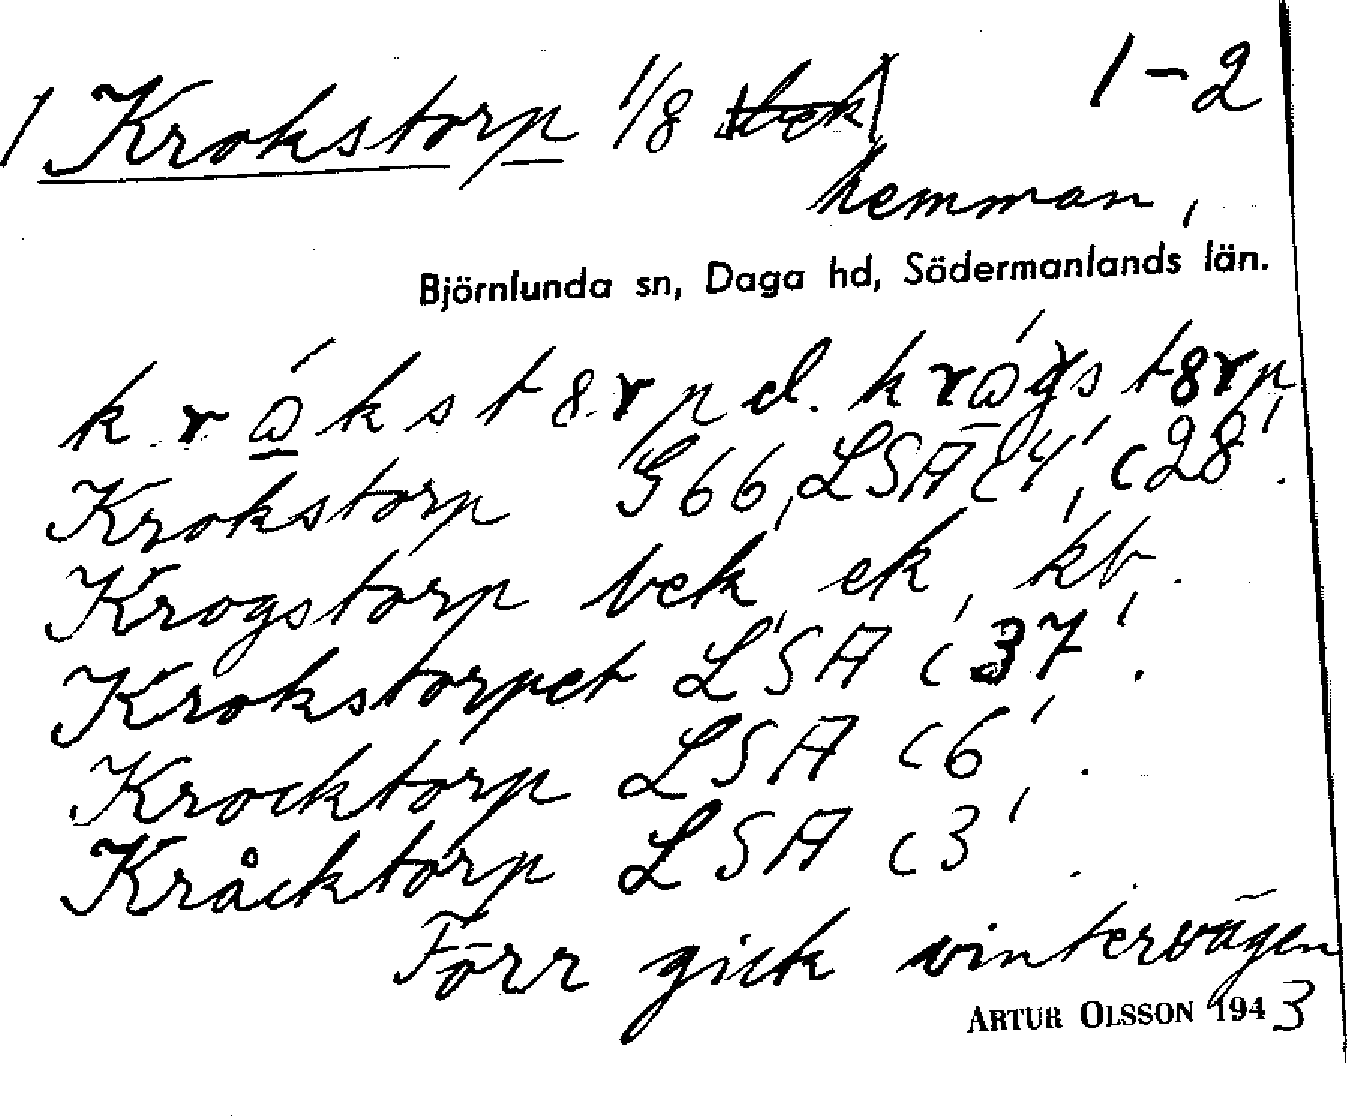 1 Krokstorp 1/8 bek 1-2
hemman,
Björnlunda sn, Daga hd, Södermanlands län.
kråkst8rp el. krågst8rp
Krokstorp G66, LSA c4', c28'.
Krogstorp bek, ek, kb.
Krokstorpet LSA c37'.
Krocktorp LSA c6'.
Kråcktorp LSA c3'.
Förr gick vintervägen
ARTUR OLSSON 1943